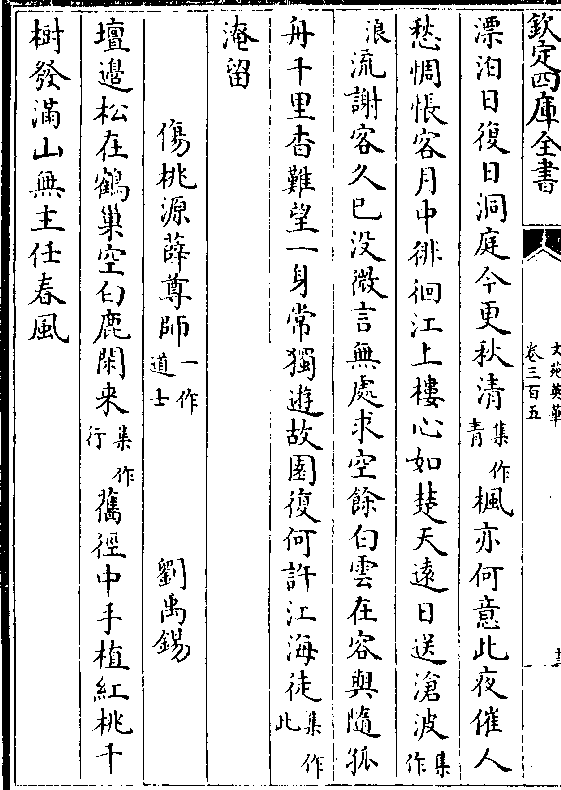 欽定四庫全書
文苑英華
卷三百五
漂泊日復日洞庭今更秋清集作青楓亦何意此夜催人
愁惆悵客月中徘徊江上樓心如楚天遠日送滄波集作
浪流謝客久已没微言無處求空餘白雲在容與隨孤
舟千里杳難望一身常獨遊故園復何許江海徒集作此
淹留
傷桃源薛尊師一作道士 劉禹錫
壇邉松在鶴巢空白鹿閑来集作行舊徑中手植紅桃千
樹發滿山無主任春風